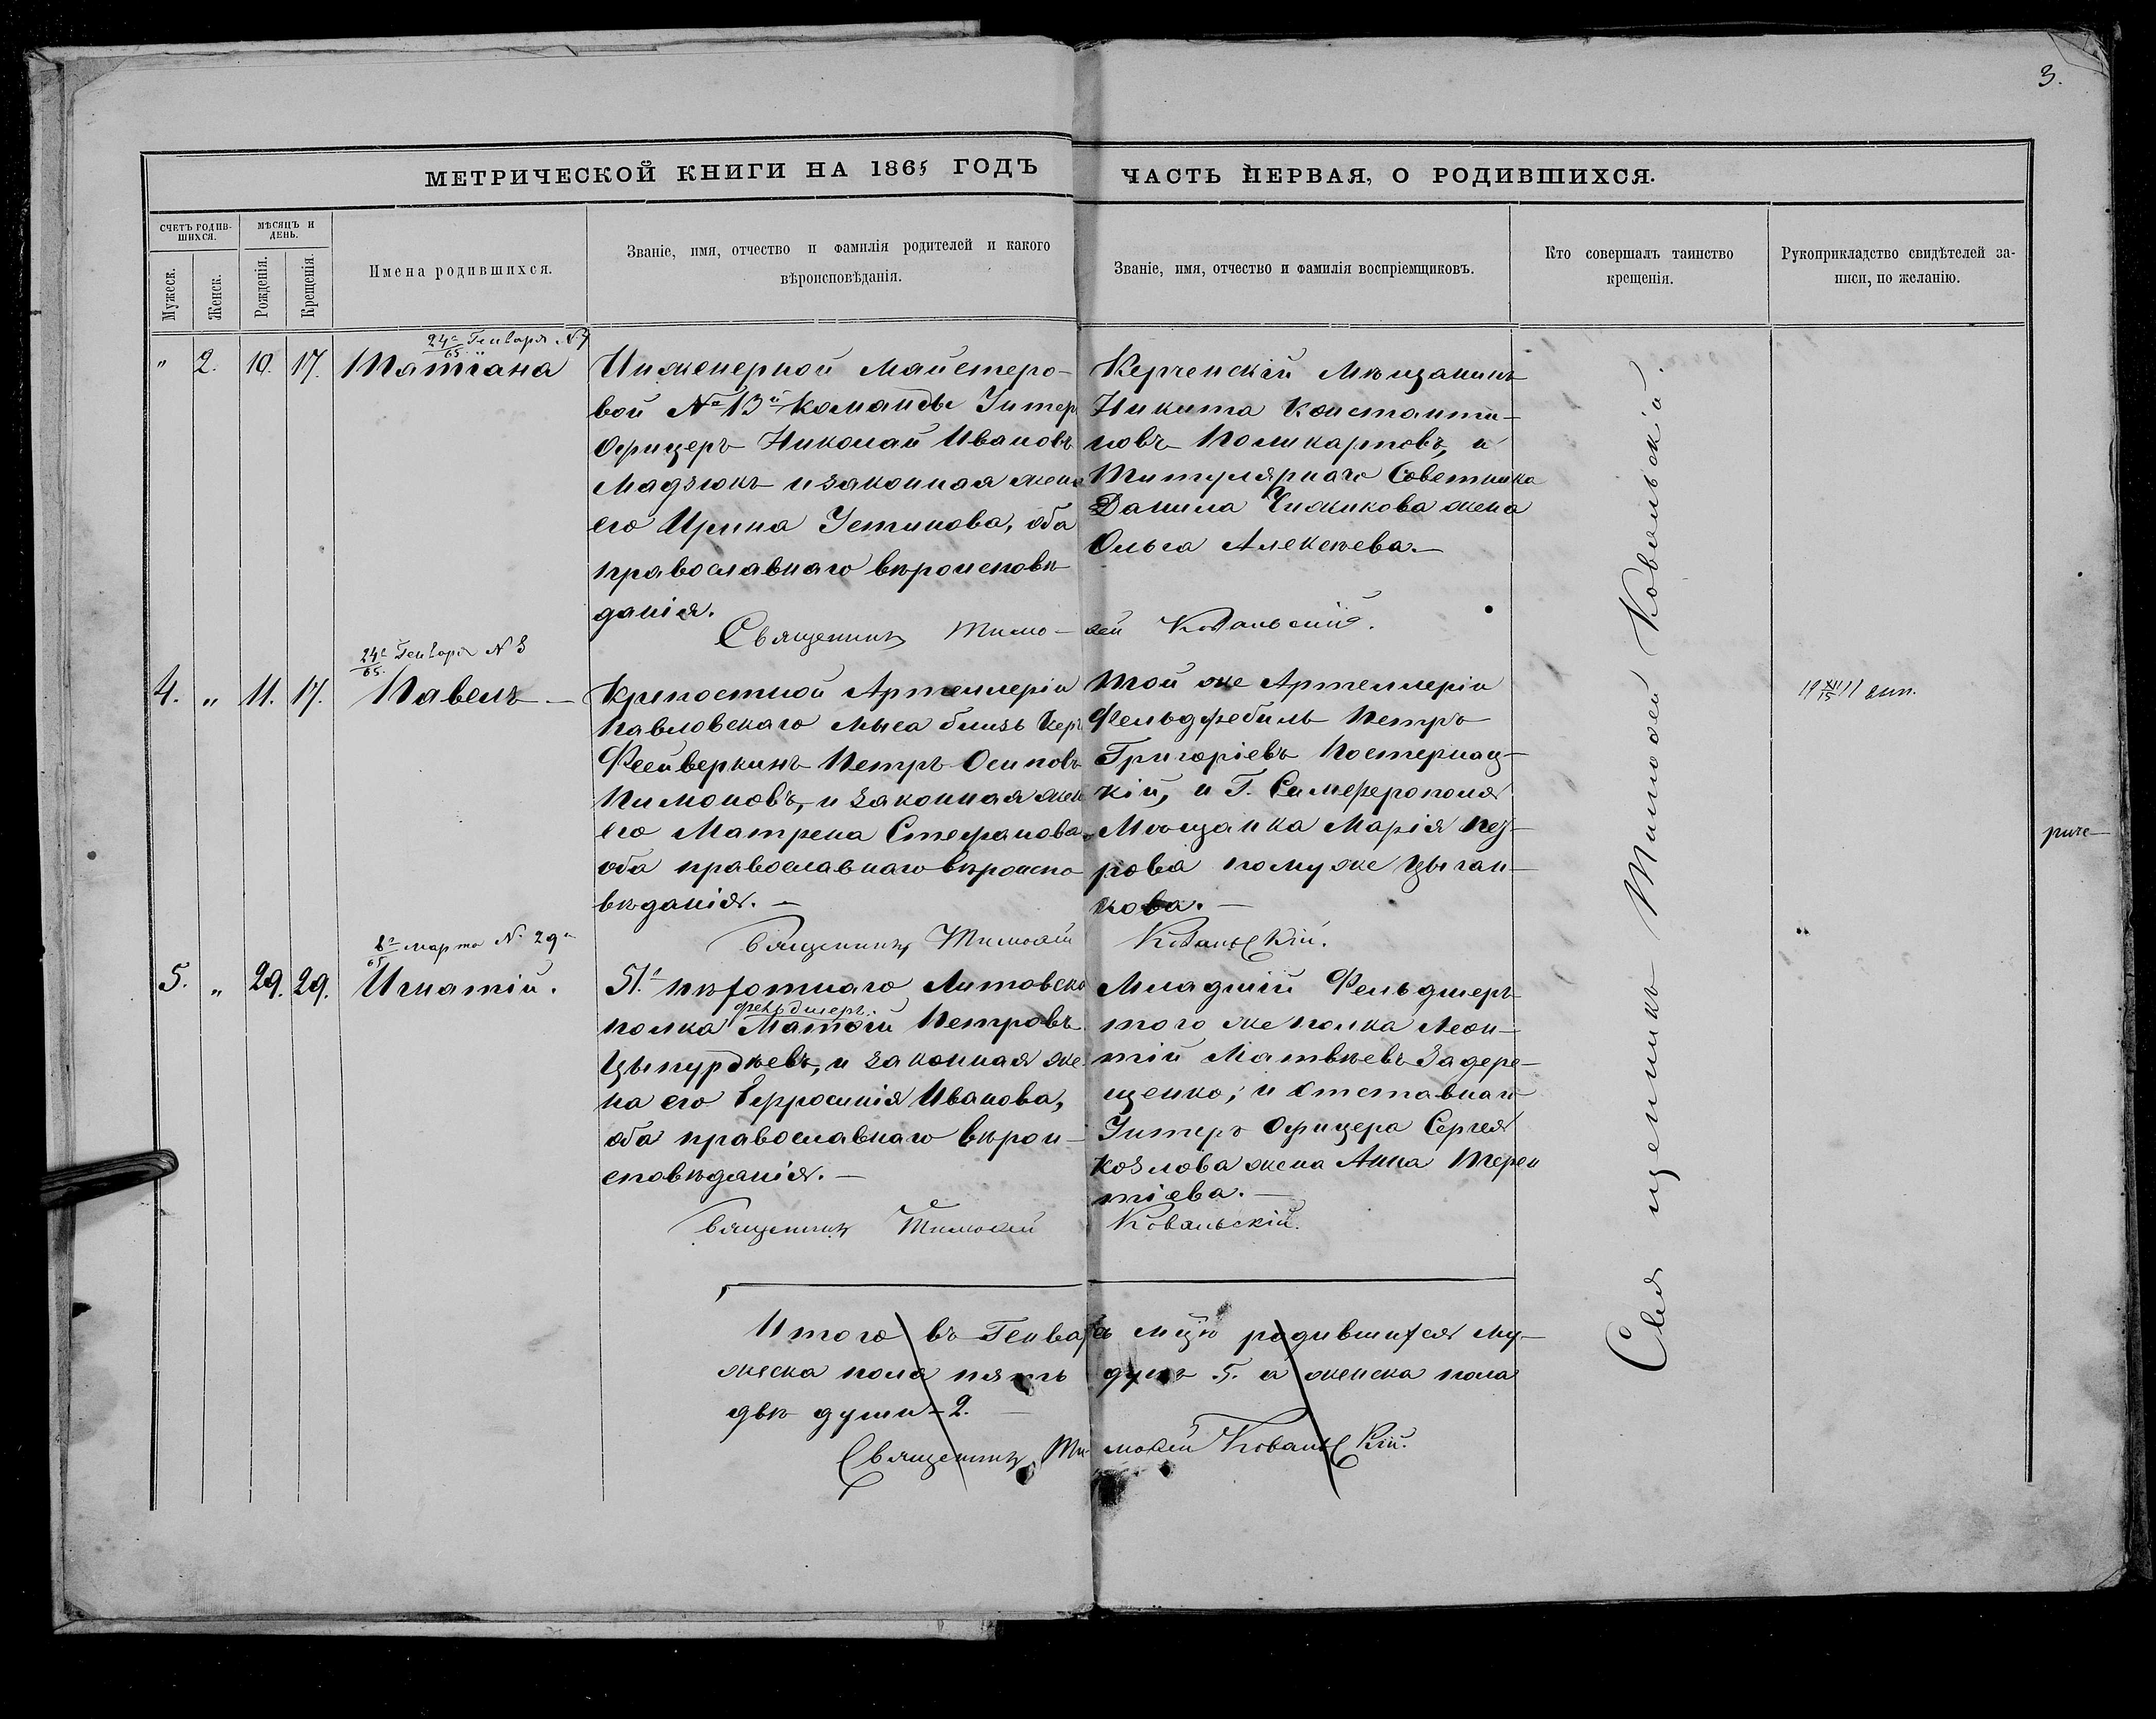 3.
МЕТРИЧЕСКОЙ КНИГИ НА 1865 ГОДЪ
ЧАСТЬ ПЕРВАЯ, О РОДИВШИХСЯ.
СЧЕТЪ РОДИВ-
ШИХСЯ.
Мужеск.
Женск.
МѢСЯЦЪ И
ДЕНЬ.
Рожденія.
Крещенія.
Имена родившихся.
Званіе, имя, отчество и фамилія родителей и какого
вѣроисповѣданія.
Званіе, имя, отчество и фамилія воспріемщиковъ.
Кто совершалъ таинство
крещенія.
Рукоприкладство свидѣтелей за-
писи, по желанію.
24го Генваря №
65
" 2. 10. 17. Татіана
Инженерной Майстеро-
вой № 13й Команды Унтер
Офицеръ Николай Ивановъ
Мадзюкъ и законная жена
его Ирина Устинова, оба
православнаго вѣроисповѣ
данія.
Керченскій Мѣщанинъ
Никита Константи-
новъ Поликарповъ, и
Титулярнаго Советника
Данила Чижикова жена
Ольга Алексѣева.—
Священникъ Тимо-
ѳей Ковальскій.
24го Генваря № 8
65.
4. " 11. 17. Павелъ —
Крѣпостной Артеллеріи
Павловскаго Мыса близь Кер
Феейверкинъ Петръ Осиповъ
Пимоновъ, и законная жен
его Матрена Стефанова,
оба православнаго вѣроиспо
вѣданія.—
Той же Артеллеріи
Фельдфебиль Петръ
Григоріевъ Постернац-
кій, и Г. Симферополя
Мѣщанка Марія Пет-
рова помуже Цыган-
кова.—
19 XII/15 11 вып.
Священникъ Тимоѳей
Ковальскій.
8го марта № 29й
65
5. " 29. 29. Игнатій.
51го пѣхотнаго Литовска
фельдшеръ
полка Матѳій Петровъ
Цыпурдѣевъ, и законная же-
на его Ефросинія Иванова,
оба православнаго вѣрои-
сповѣданія.—
Младшій Фельдшеръ
того же полка Леон-
тій Матвѣевъ Задере-
щенко, и отставнаго
Унтеръ Офицера Сергея
Козлова жена Анна Терен
тіева.—
Священникъ Тимоѳей
Ковальскій.
Священникъ Тимоѳей Ковальскій.
Итого въ Генварѣ мцѣ родившихся му-
жеска пола пять душъ 5. а женска пола
двѣ души—2.
Священникъ Тимоѳей Ковальскій.